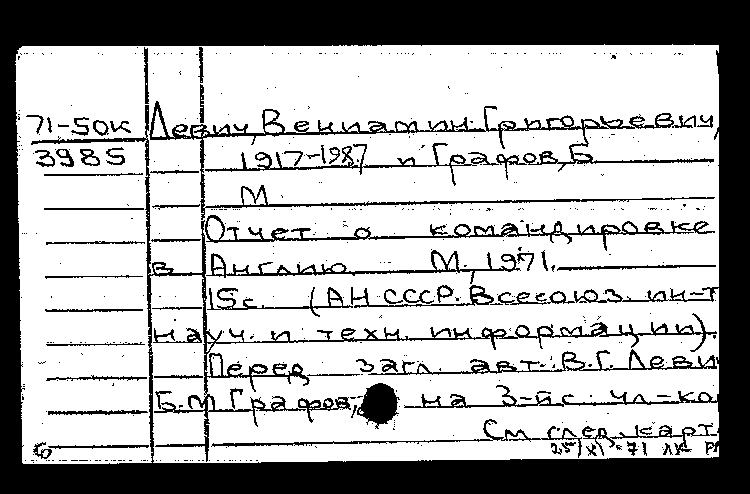 71-50к Левич, Вениамин Григорьевич,
3985 1917-1987 и Графов, Б
М
Отчет о командировке
в Англию. М., 1971.
15с. (АН СССР. Всесоюз. ин-т
науч. и техн. информации).
Перед загл. авт.: В.Г. Леви
Б.М Графов, на 3-й с чл-ко
См след. карт
25/XI-71 лк